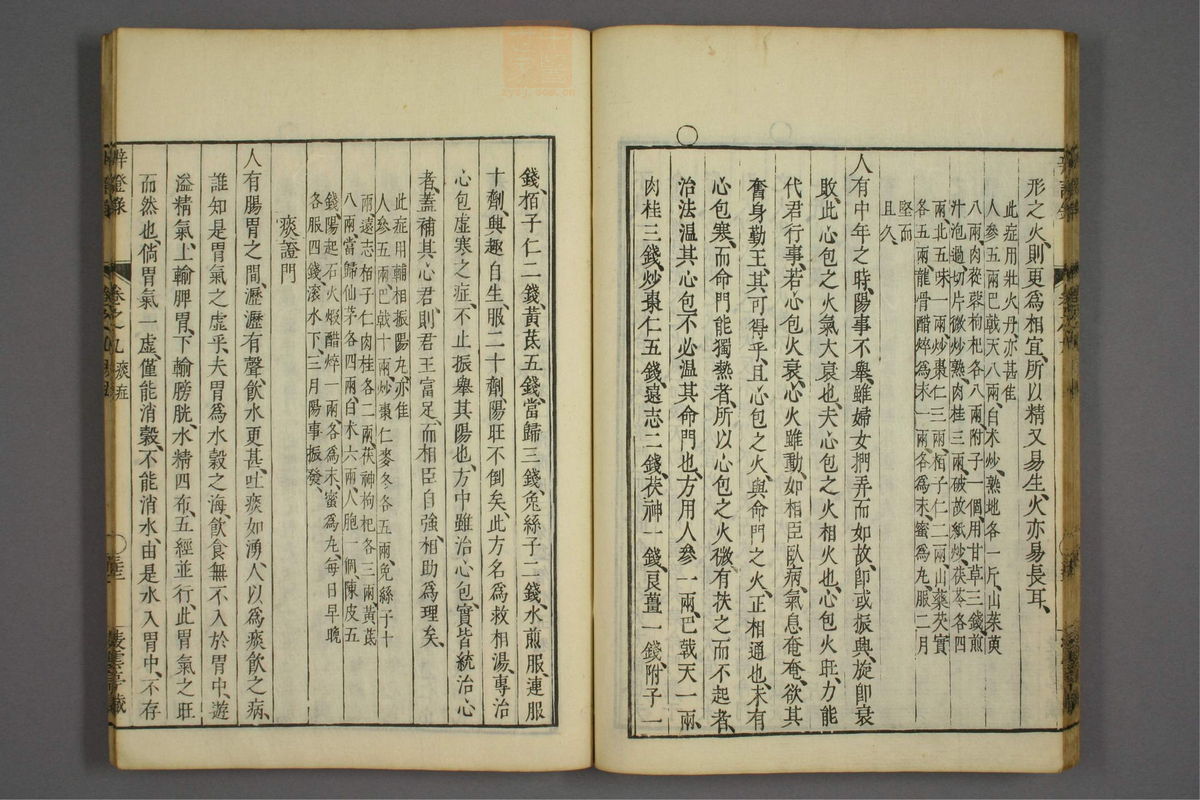 形之火、則更為相宜、所以精又易生、火亦易長耳、
此症用壯火丹亦甚佳
人參五兩巴戟天八兩、白朮炒、熟地各一斤、山茱萸
八兩、肉蓯蓉枸杞各八兩附子一個、用甘草三錢煎
汁泡過切片微炒熟肉桂三兩、破故紙炒、茯苓各四
兩、北五味一兩炒棗仁三兩、栢子仁二兩、山藥芡實
各五兩龍骨醋焠為末一兩、各為末、蜜為丸、服二月
堅而
且久、
人有中年之時、陽事不舉、雖婦女捫弄而如故、卽或振興、旋卽衰
敗、此心包之火氣大衰也、夫心包之火相火也、心包火旺、力能
代君行事、若心包火衰、心火雖動、如相臣臥病、氣息奄奄、欲其
奮身勤王、其可得乎、且心包之火、與命門之火、正相通也、未有
心包寒、而命門能獨熱者、所以心包之火微、有扶之而不起者、
治法溫其心包、不必溫其命門也、方用人參一兩、巴戟天一兩、
肉桂三錢、炒棗仁五錢、遠志二錢、茯神一錢、良薑一錢、附子一
錢、栢子仁二錢、黃芪五錢、當歸三錢、兔絲子二錢、水煎服、連服
十劑、興趣自生、服二十劑、陽旺不倒矣、此方名為救相湯、專治
心包虛寒之症、不止振舉其陽也、方中雖治心包、實皆統治心
者、蓋補其心君、則君王富足、而相臣自強、相助為理矣、
此症用輔相振陽丸、亦佳
人參五兩、巴戟十兩、炒棗仁麥冬各五兩、兔絲子十
兩遠志栢子仁肉桂各二兩、茯神枸杞各三兩黃芪
八兩、當歸仙茅各四兩、白朮六兩、人胞一個、陳皮五
錢、陽起石火煅醋焠一兩、各為末、蜜為丸、每日早晚
各服四錢滾水下三月陽事振發、
痰證門
人有腸胃之間、瀝瀝有聲、飲水更甚、吐痰如湧、人以為痰飲之病、
誰知是胃氣之虛乎、夫胃為水穀之海、飲食無不入於胃中、遊
溢精氣、上輸脾胃、下輸膀胱、水精四布、五經並行、此胃氣之旺
而然也、倘胃氣一虛、僅能消穀、不能消水、由是水入胃中、不存